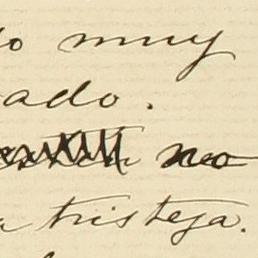 do muy
ado.
no
a tristeza.